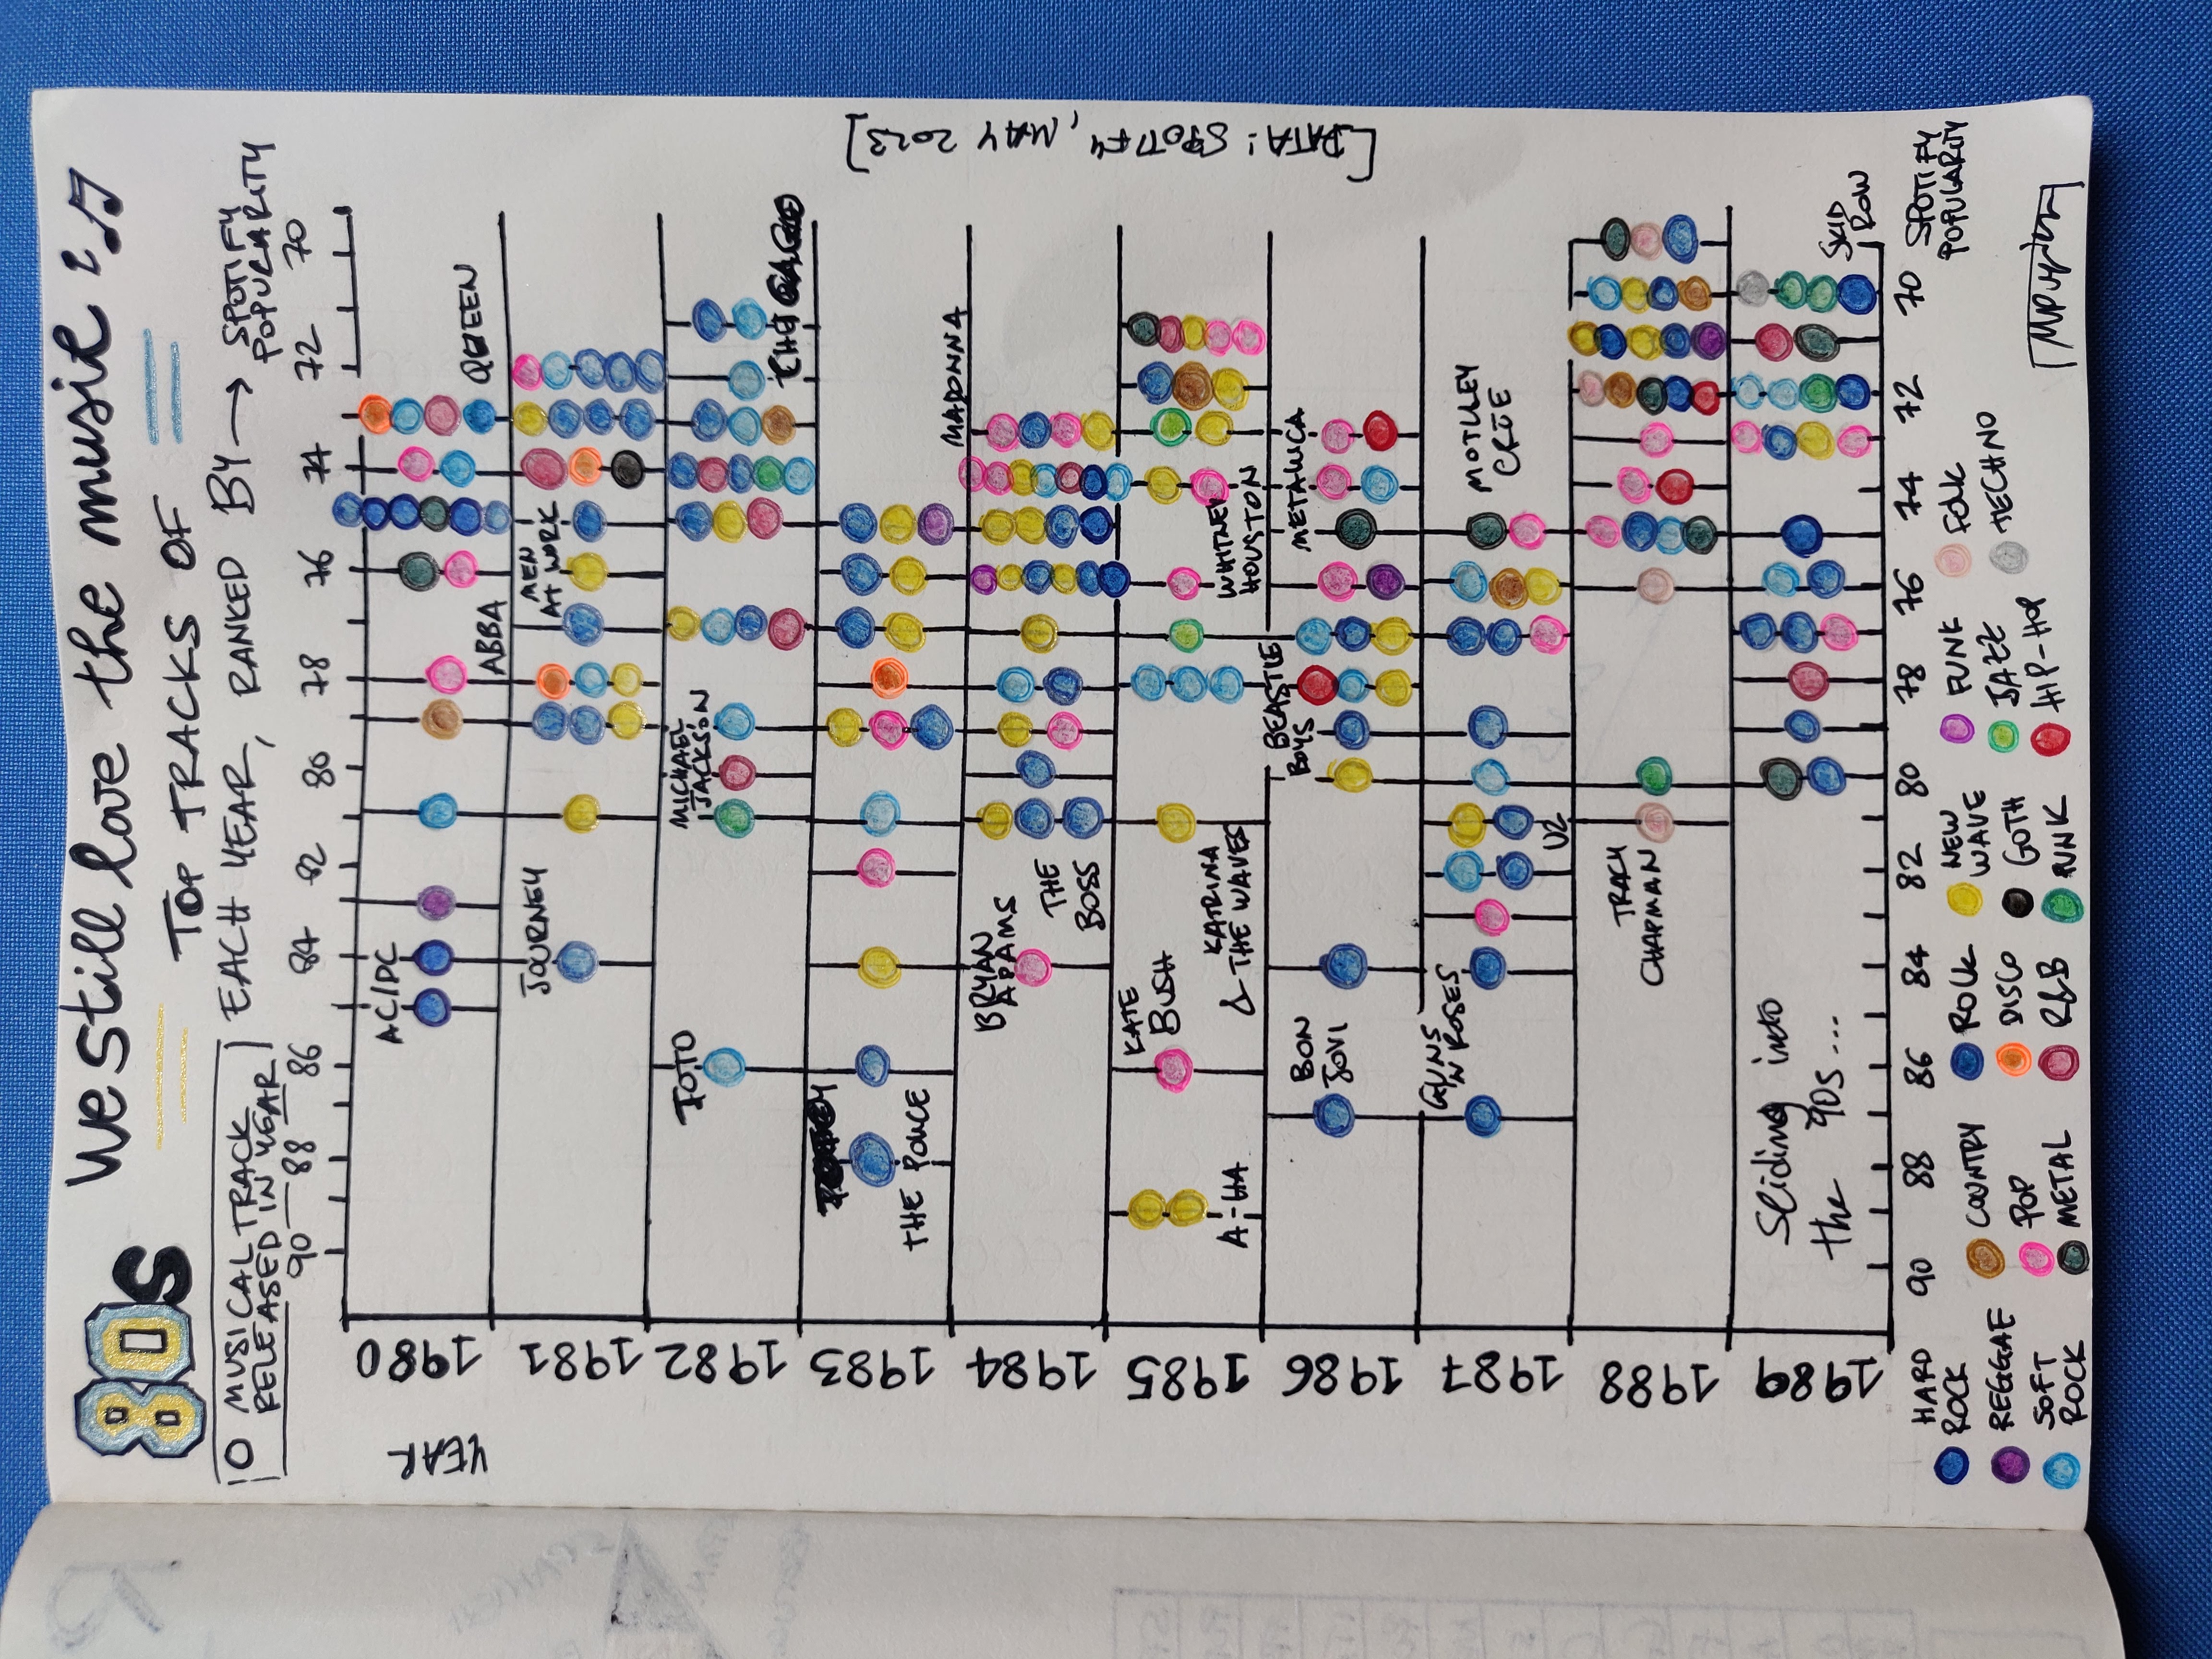 80s we still love the music
TOP TRACKS OF
O MUSICAL TRACK
RELEASED IN YEAR
EACH YEAR, RANKED BY → SPOTIFY
POPULARITY
90 88 86 84 82 80 78 76 74 72 70
YEAR
1980
AC/DC
ABBA
QUEEN
1981
JOURNEY
MEN
AT WORK
1982
TOTO
MICHAEL
JACKSON
1983
THE POLICE
1984
BRYAN
ADAMS
THE
BOSS
MADONNA
1985
A-HA
KATE
BUSH
KATRINA
& THE WAVES
WHITNEY
HOUSTON
1986
BON
JOVI
BEASTIE
BOYS
METALLICA
1987
GUNS
N ROSES
U2
MOTLLEY
CRÜE
1988
TRACY
CHAPMAN
1989
Sliding into
the 90s...
SKID
ROW
90 88 86 84 82 80 78 76 74 72 70
SPOTIFY
POPULARITY
HARD
ROCK
COUNTRY
ROCK
NEW
WAVE
FUNK
FOLK
REGGAE
POP
DISCO
GOTH
JAZZ
TECHNO
SOFT
ROCK
METAL
R&B
PUNK
HIP-HOP
[DATA: SPOTIFY, MAY 2023]